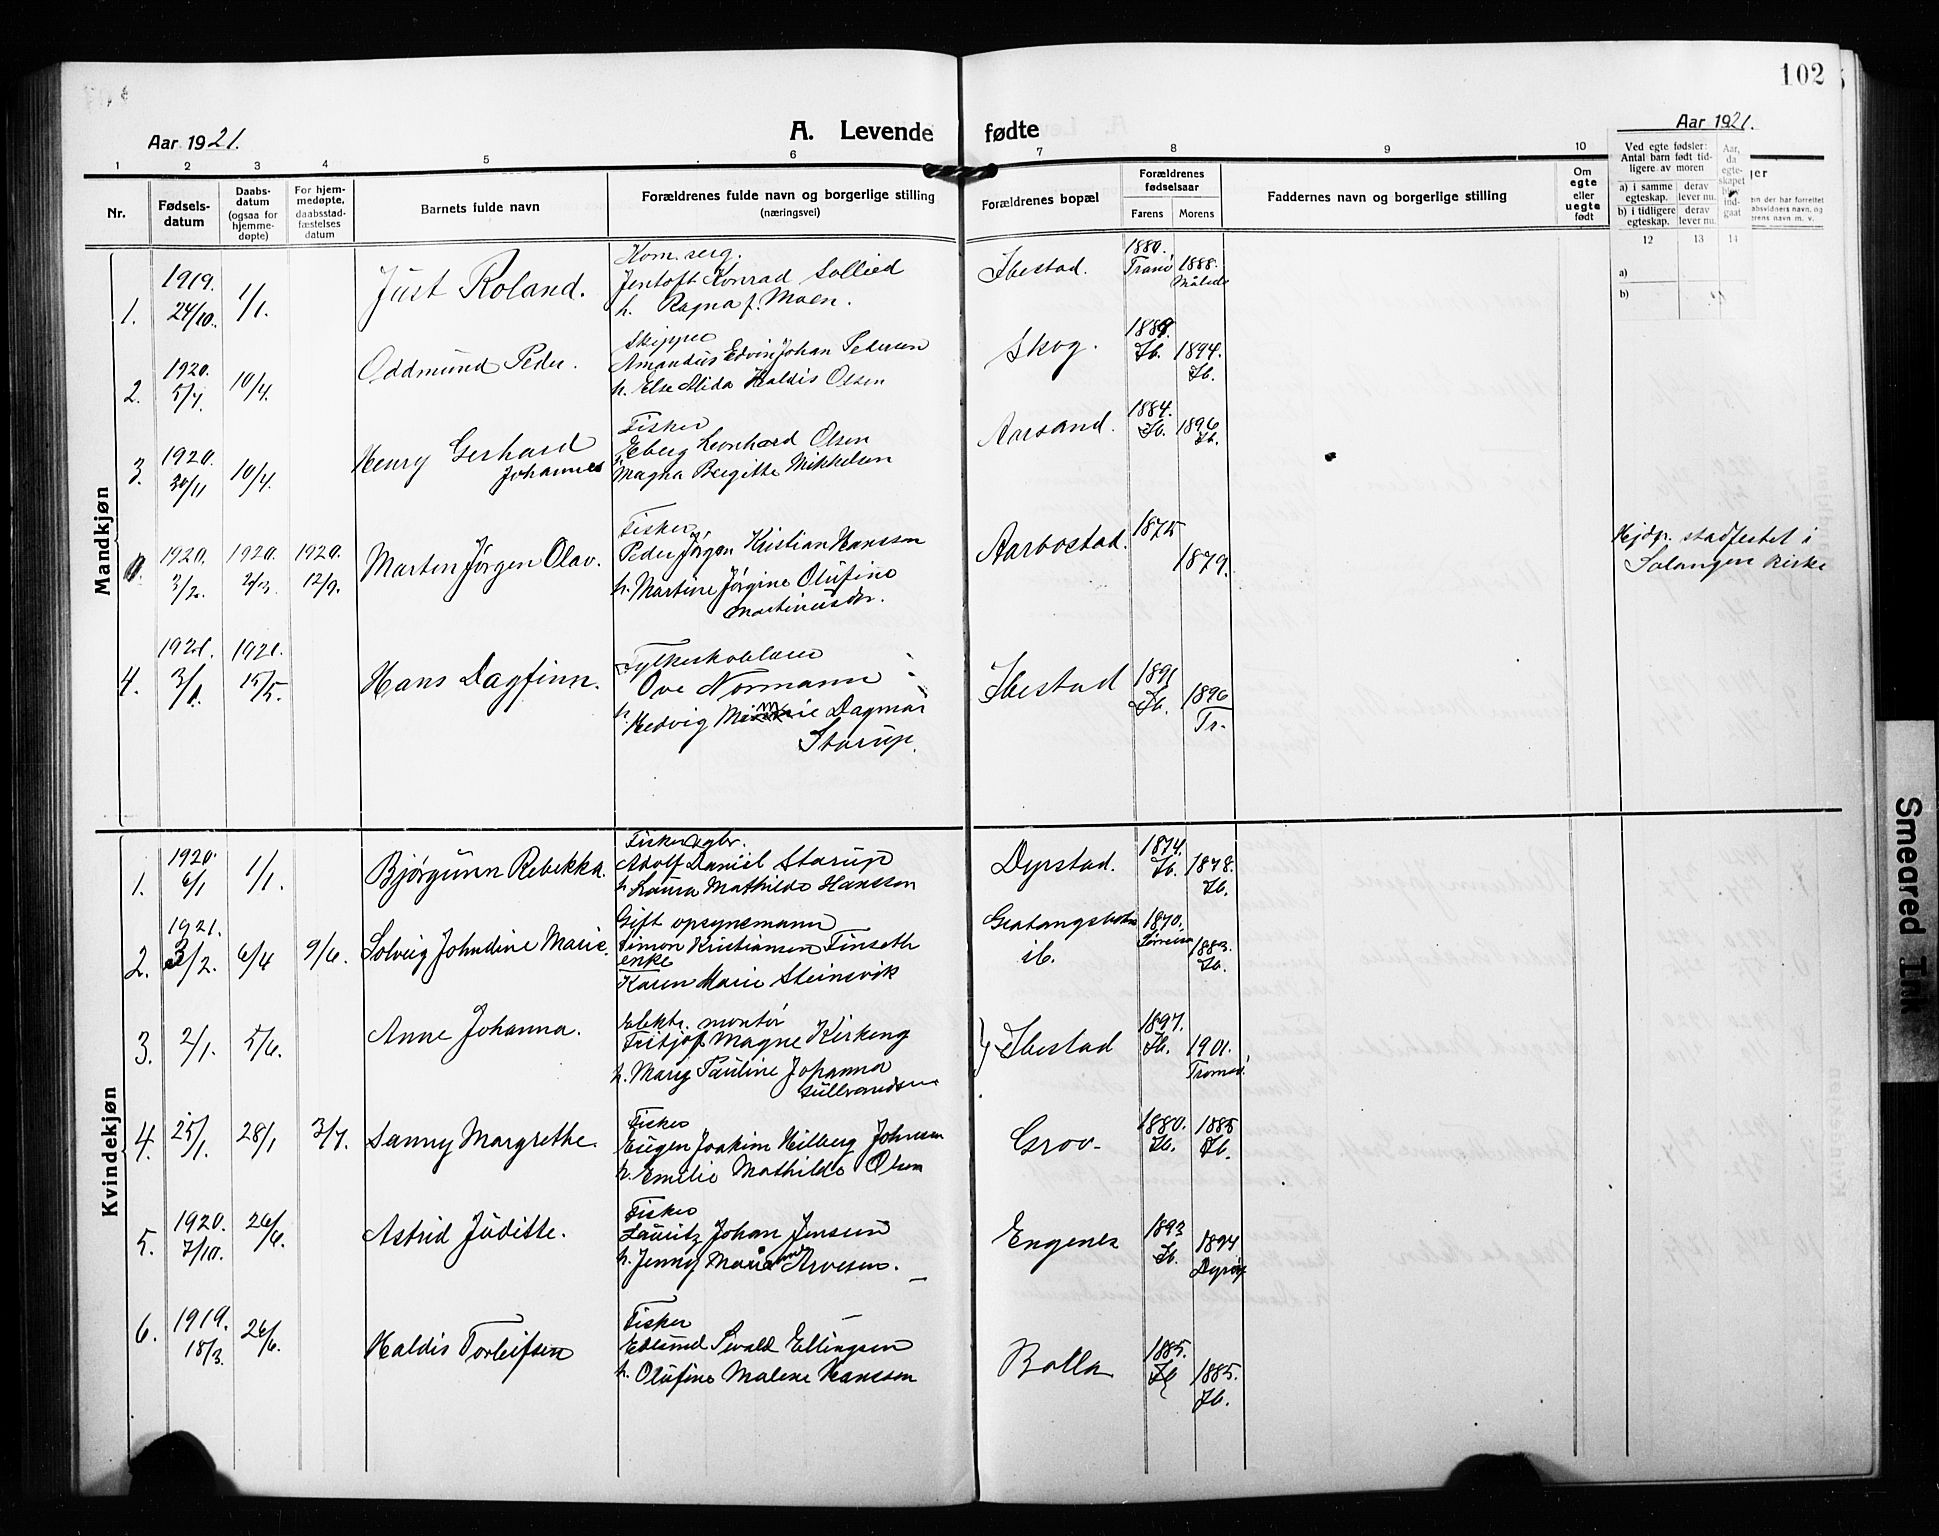 102
Aar 1921.
A. Levende fødte
Aar 1921.
1 2 3 4 5 6 7 8 9 10
Nr.
Fødsels-
datum
Daabs-
datum
(ogsaa for
hjemme-
døpte)
For hjem-
medøpte,
daabsstad-
fæstelses
datum
Barnets fulde navn
Forældrenes fulde navn og borgerlige stilling
(næringsvei)
Forældrenes bopæl
Forældrenes
fødselsaar
Farens Morens
Faddernes navn og borgerlige stilling
Om
egte
eller
uegte
født
Ved egte fødsler:
Antal barn født tid-
ligere av moren
a) i samme
egteskap.
derav
lever nu.
b) i tidligere
egteskap.
derav
lever nu.
Aar,
da
egte-
skapet
blev
ind-
gaat
12 13 14
a)
b)
Mandkjøn
1.
1919.
24/10.
1/1.
Just Roland.
Kom. serg.
Jentoft Konrad Sollied
h. Ragna f. Moen.
Ibestad.
1880.
Tranø
1888.
Målselv
2.
1920.
5/7.
10/4.
Oddmund Peder.
Skipper
Amandus Edvin Johan Pedersen
h. Else Alida Haldis Olsen
Skog.
1889.
Ib.
1894.
Ib.
3.
1920.
30/11
10/4.
Henry Gerhard
Johannes
Fisker
Eberg Leonhard Olsen
h. Magna Bergitte Mikkelsen
Aarsand.
1884.
Ib.
1896
Ib.
1920.
3/2.
1920.
2/3.
1920.
12/9.
Martin Jørgen Olav.
Fisker
Peder Jørgen Kristian Hansen
h. Martine Jørgine Olufine
Martinusdr.
Aarbostad.
1875
1879.
Hjdp. stadfestet i
Salangen kirke
4.
1921.
3/1.
1921.
15/5.
Hans Dagfinn.
Fylkesskolelærer
Ove Normann
h. Hedvig Marie Dagmar
Starup.
Ibestad
1891
Ib.
1896
Tr.
Kvindekjøn
1.
1920.
6/1
1/1.
Bjørgunn Rebekka.
Fisker gbr.
Adolf Daniel Starup
h. Laura Mathilde Hansen
Dyrstad.
1874.
Ib.
1878.
Ib.
2.
1921.
3/2.
6/4
9/6.
Solveig Johndine Marie.
Gift opsynsmann
Simon Kristiansen Finseth
enke
Karen Marie Steinsvik
Gratangsbotn
ib.
1870.
Sørreisa
1883.
Ib.
3.
2/1.
5/6.
Anne Johanna.
Elektr. montør
Fritjof Magne Kirkeng
h. Mary Pauline Johanna
Gulbrandsen
Ibestad
1897.
Ib.
1901.
Tromsø.
4.
25/1.
28/1
3/7.
Sanny Margrethe.
Fisker
Eugen Joakim Hilberg Johnsen
h. Emelie Mathilde Olsen
Grov
1880.
Ib.
1885
Ib.
5.
1920.
7/10.
26/6.
Astrid Juditte.
Fisker
Lauritz Johan Jensen
h. Jenny Marie Arvesen.
Engenes
1893
Ib.
1894
Dyrøy
6.
1919.
18/3.
26/6.
Haldis Torleifsen
Fisker
Edlund Sevald Ellingsen
h. Olufine Malene Hansen
Bolla
1885.
Ib
1885.
Ib.
Smeared Ink